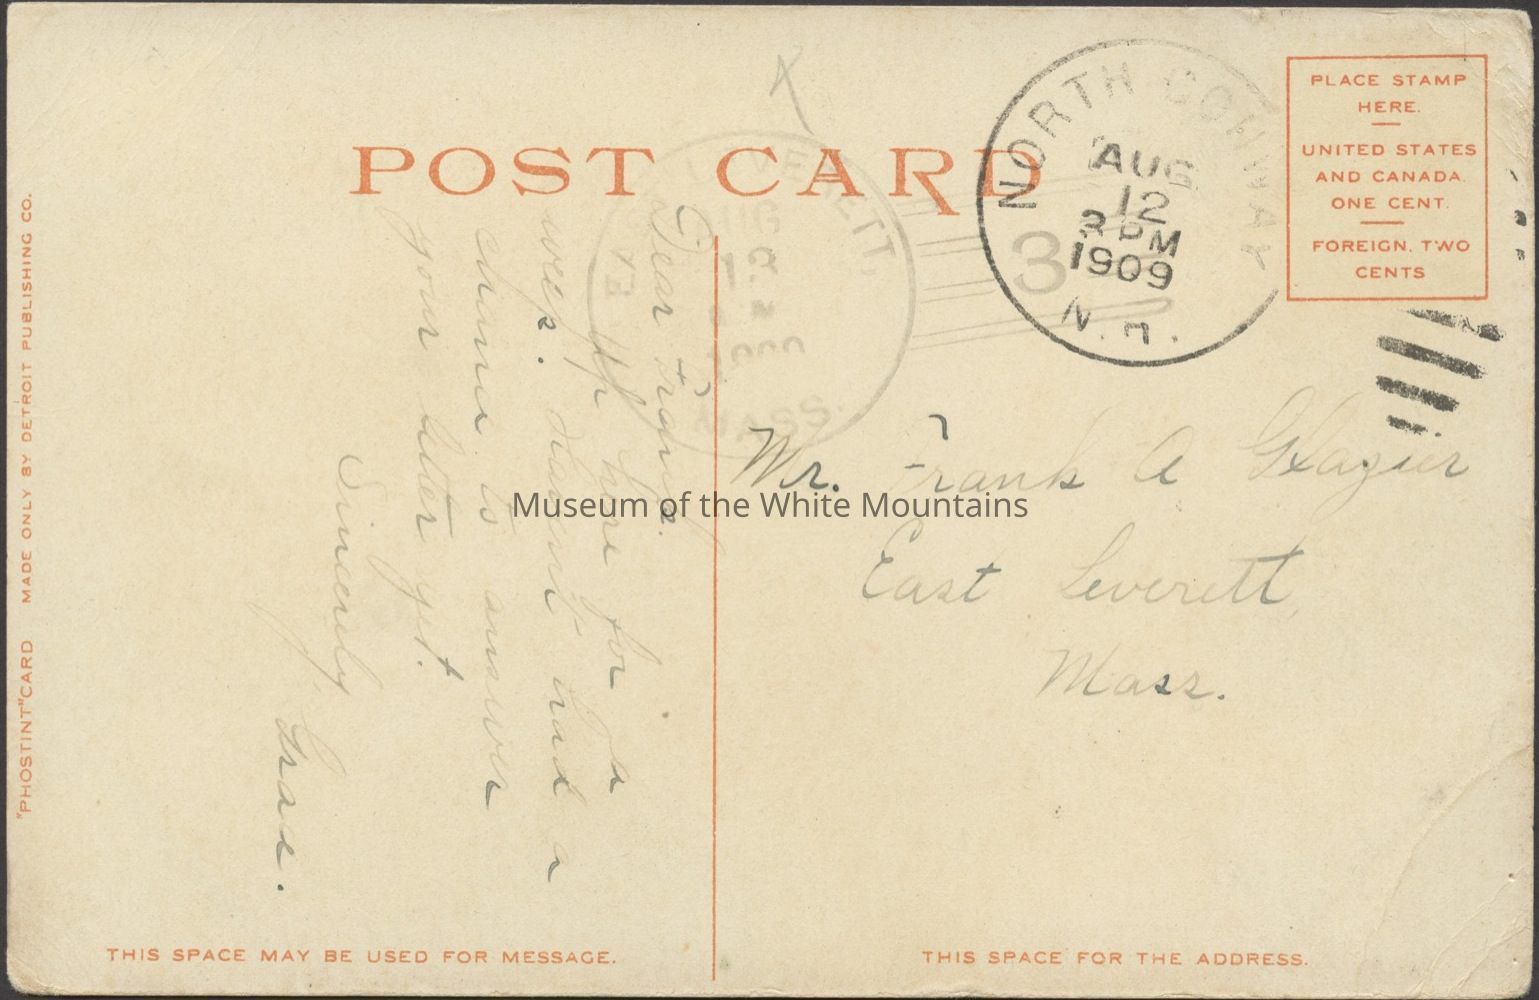 POST CARD
PLACE STAMP
HERE.
UNITED STATES
AND CANADA
ONE CENT.
FOREIGN. TWO
CENTS
NORTH CONWAY
AUG
12
3 PM
1909
N.H.
3
LEVERETT,
MASS.
Dear Frank.
Up here for a
week. Haven't had a
chance to answer
your letter yet.
Sincerely,
Grace.
Mr. Frank A Glazier
East Leverett,
Mass.
Museum of the White Mountains
"PHOSTINT" CARD MADE ONLY BY DETROIT PUBLISHING CO.
THIS SPACE MAY BE USED FOR MESSAGE.
THIS SPACE FOR THE ADDRESS.